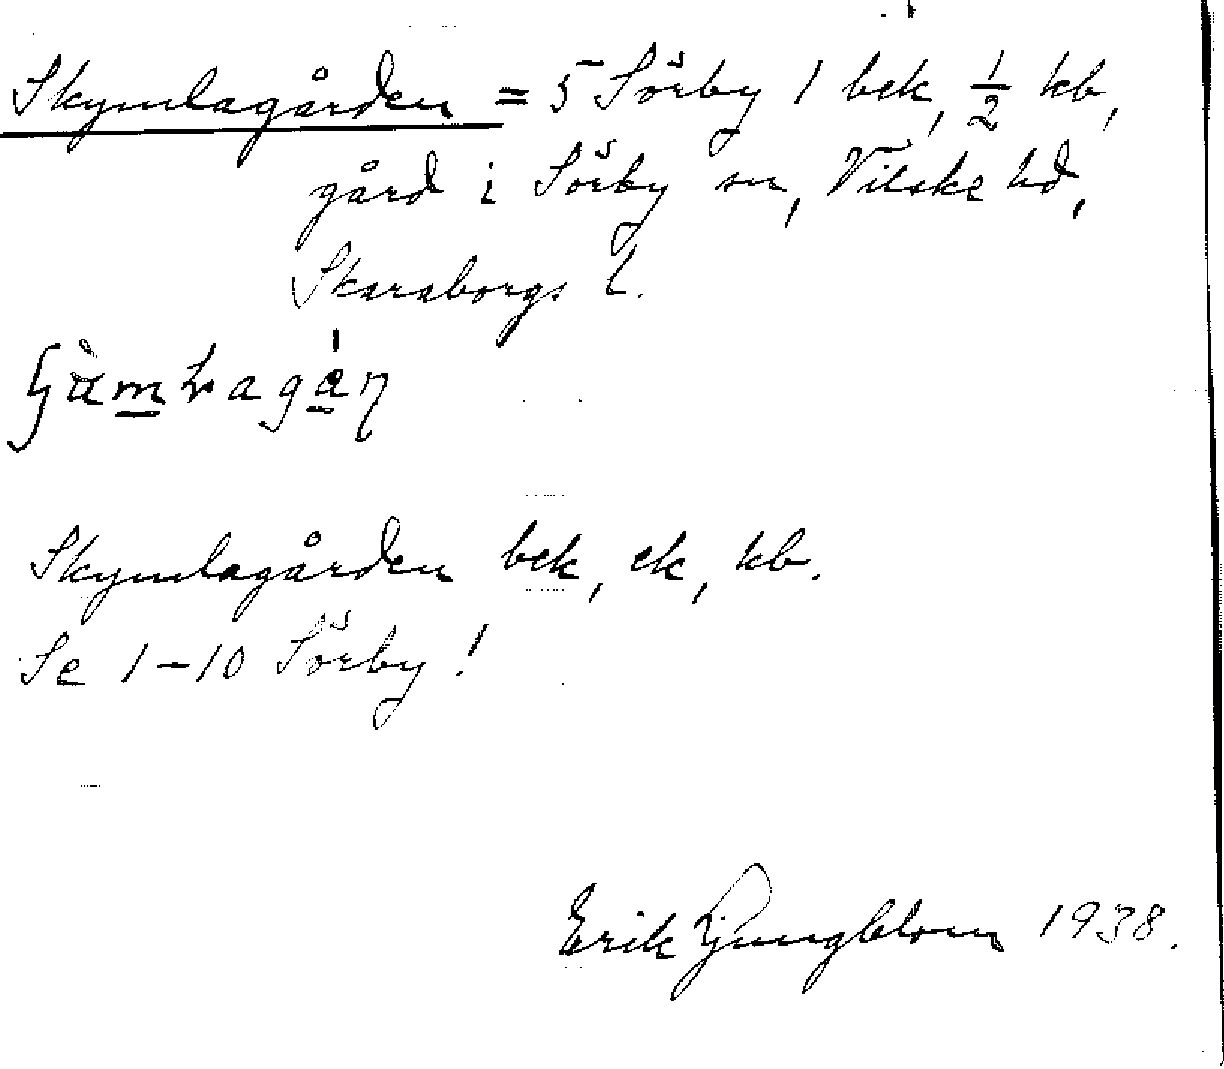 Skymlagården = 5 Sörby 1 bek, 1/2 kb,
gård i Sörby sn, Vilske hd,
Skaraborgs l.
Skymlagården bek, ek, kb.
Se 1-10 Sörby!
Erik Ljungblom 1938.